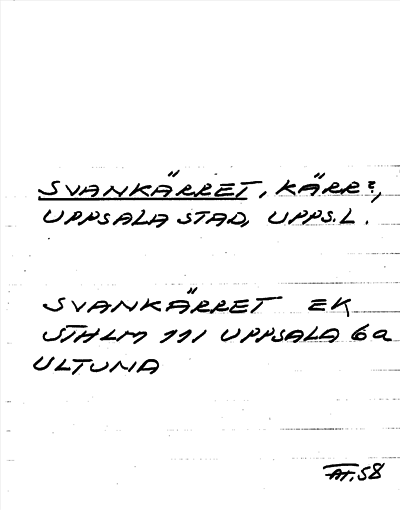 SVANKÄRRET, KÄRR?,
UPPSALA STAD, UPPS.L.
SVANKÄRRET EK
STHLM 111 UPPSALA 6a
ULTUNA
AT.58